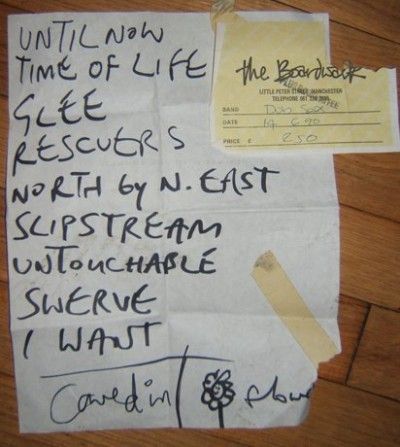 UNTIL NOW
TIME OF LIFE
GLEE
RESCUERS
NORTH by N. EAST
SLIPSTREAM
UNTOUCHABLE
SWERVE
I WANT
Caved in
the Boardwalk
LITTLE PETER STREET MANCHESTER
TELEPHONE 061 228
BAND
DATE 14 6 90
PRICE £ 2.50